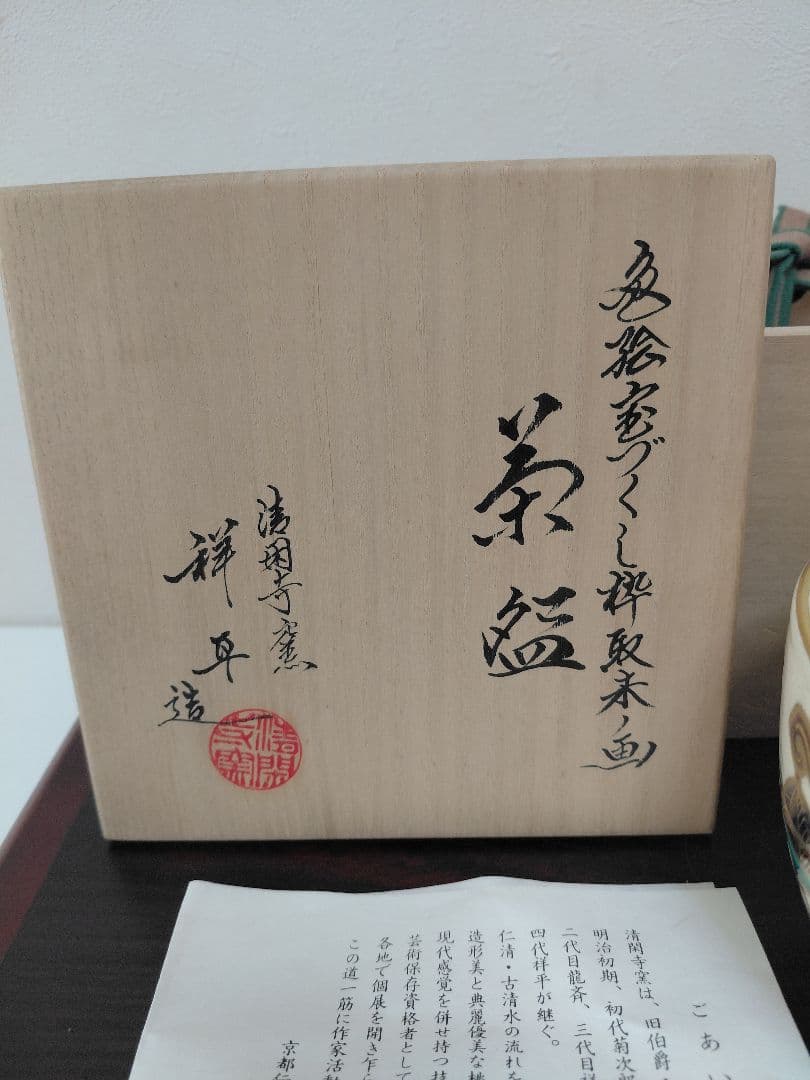 色絵宝づくし枠取末ノ画
茶盌
清閑寺窯
祥平造
清閑寺窯
ごあい
清閑寺窯は、旧伯爵
明治初期、初代菊次郎
二代目龍斉、三代目祥
四代祥平が継ぐ。
仁清・古清水の流れを
造形美と典麗優美な
現代感覚を併せ持つ技
芸術保存資格者として
各地で個展を開き乍ら
この道一筋に作家活
京都伝